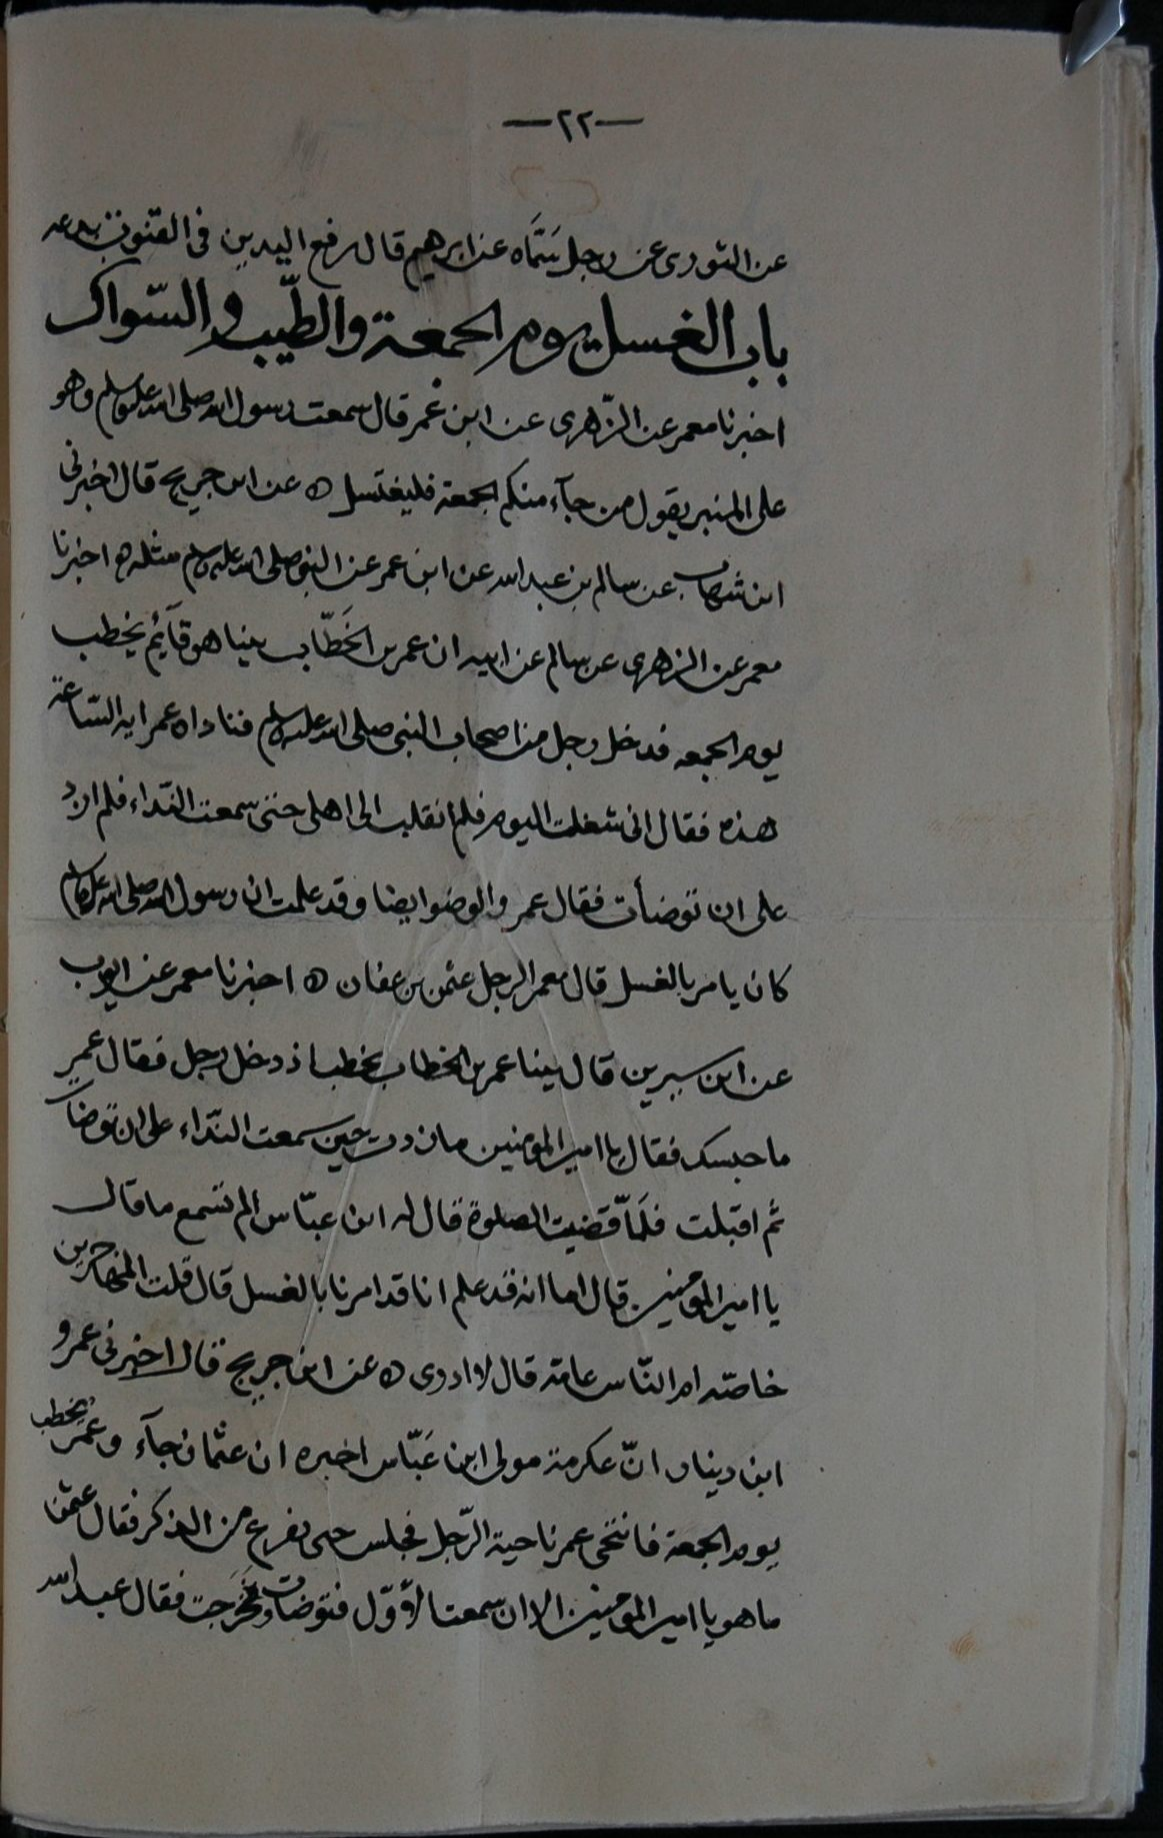 —٢٢—
عن الثوری عن رجل سَمَّاه عن ابرهیم قال رفع الیدین فی القنوت بدعه
باب الغسل یوم الجمعة والطّیب والسّواک
اخبرنا معمر عن الزّهری عن ابن عمر قال سمعت رسول الله صلی الله علیه وسلم وهو
علی المنبر یقول من جآء منکم الجمعة فلیغتسل ه عن ابن جریج قال اخبرنی
ابن شهاب عن سالم بن عبد الله عن ابن عمر عن النبی صلی الله علیه وسلم مثله ه اخبرنا
معمر عن الزهری عن سالم عن ابیه ان عمر بن الخَطّاب بینا هو قآئم یخطب
یوم الجمعه فدخل رجل من اصحاب النبی صلی الله علیه وسلم فناداه عمر ایه السّاعة
هذه فقال انی شغلت الیوم فلم انقلب الی اهلی حتی سمعت النّداء فلم ازد
علی ان توضأت فقال عمر والوضو ایضا وقد علمت ان رسول الله صلی الله علیه وسلم
کان یامر بالغسل قال معمر الرجل عثمن بن عفان ه اخبرنا معمر عن ایوب
عن ابن سیرین قال بینا عمر بن الخطاب یخطب اذ دخل رجل فقال عمر
ما حبسک فقال یا امیر المومنین ما زدت حین سمعت النّداء علی ان توضات
ثم اقبلت فلَمّا قضیت الصلوة قال له ابن عبّاس الم تسمع ما قال
یا امیر المومنین قال اما انه قد علم انا قد امرنا بالغسل قال قلت المهاجرین
خاصّه ام النّاس عامة قال لا ادری ه عن ابن جریج قال اخبرنی عمرو
ابن دینار انّ عکرمة مولی ابن عَبّاس اخبره ان عثمان جآء وعُمَر یخطب
یوم الجمعة فانتحی عمر ناحیة الرّجل فجلس حتی یفرغ من الذکر فقال عثمن
ما هو یا امیر المومنین الا ان سمعت الاوّل فتوضات وخَرَجت فقال عبد الله